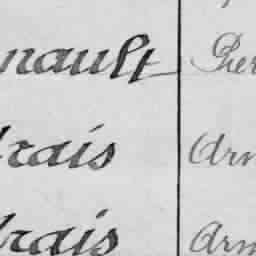 nault Pier
drais Arm
drais Arm